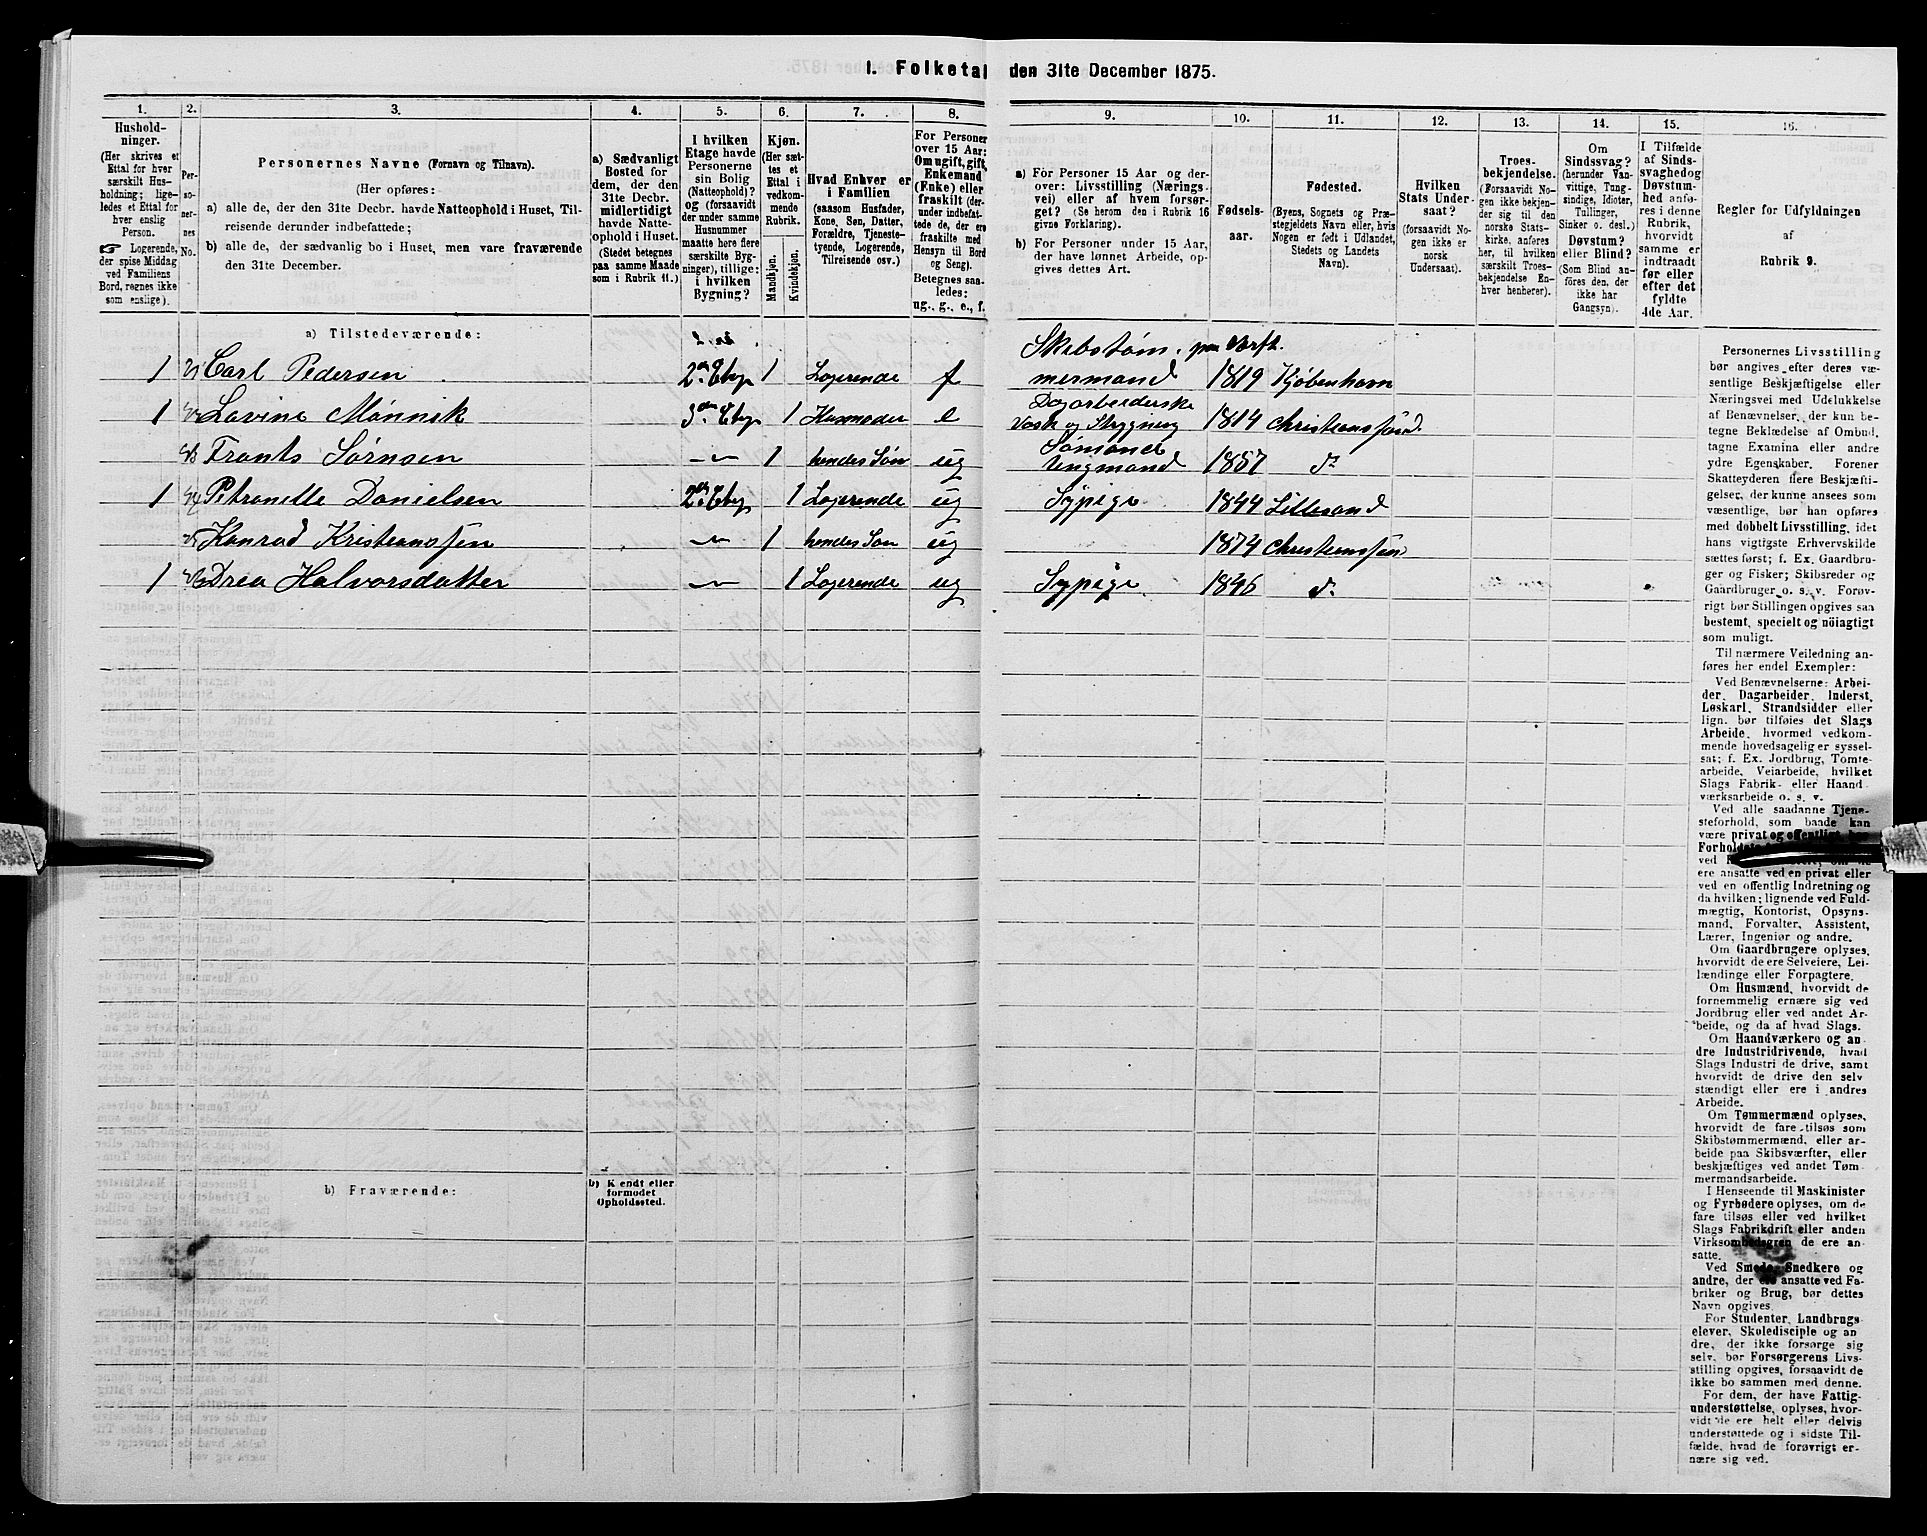 I. Folketal den 31te December 1875.
1.
2.
3.
4.
5.
6.
7.
8.
9.
10.
11.
12.
13.
14.
15.
16.
Hushold-
ninger.
(Her skrives et
Ettal for hver
særskilt Hus-
holdning; lige-
ledes et Ettal for
hver enslig
Person.
☞ Logerende,
der spise Middag
ved Familiens
Bord, regnes ikke
som enslige).
Per-
so-
ner-
nes
No.
Personernes Navne (Fornavn og Tilnavn).
(Her opføres:
a) alle de, der den 31te Decbr. havde Natteophold i Huset, Til-
reisende derunder indbefattede;
b) alle de, der sædvanlig bo i Huset, men vare fraværende
den 31te December.
a) Sædvanligt
Bosted for
dem, der den
31te Decbr.
midlertidigt
havde Natte-
ophold i Huset.
(Stedet betegnes
paa samme Maade
som i Rubrik 11.)
I hvilken
Etage havde
Personerne
sin Bolig
(Natteophold)?
og (forsaavidt
der under samme
Husnummer
maatte høre flere
særskilte Byg-
ninger), tillige:
i hvilken
Bygning?
Kjøn.
(Her sæt-
tes et
Ettal i
vedkom-
mende
Rubrik.
Mandkjøn.
Kvindekjøn.
Hvad Enhver er
i Familien
(saasom Husfader,
Kone, Søn, Datter,
Forældre, Tjeneste-
tyende, Logerende,
Tilreisende osv.)
For Personer
over 15 Aar:
Om ugift, gift,
Enkemand
(Enke) eller
fraskilt (der-
under indbefat-
tede de, der ere
fraskilte med
Hensyn til Bord
og Seng).
Betegnes saa-
ledes:
ug., g., e., f.
a) For Personer 15 Aar og der-
over: Livsstilling (Nærings-
vei) eller af hvem forsør-
get? (Se herom den i Rubrik 16
givne Forklaring).
b) For Personer under 15 Aar,
der have lønnet Arbeide, op-
gives dettes Art.
Fødsels-
aar.
Fødested.
(Byens, Sognets og Præ-
stegjeldets Navn eller, hvis
Nogen er født i Udlandet,
Stedets og Landets
Navn).
Hvilken
Stats Under-
saat?
(forsaavidt No-
gen ikke er
norsk
Undersaat).
Troes-
bekjendelse.
(Forsaavidt No-
gen ikke bekjen-
der sig til den
norske Stats-
kirke, anføres
her, til hvilken
særskilt Troes-
bekjendelse En-
hver henhører).
Om
Sindssvag?
(herunder Van-
vittige, Tung-
sindige, Idioter,
Tullinger,
Sinker o. desl.)
Døvstum?
eller Blind?
(Som Blind an-
føres den, der
ikke har
Gangsyn).
I Tilfælde
af Sinds-
svaghed og
Døvstum-
hed anfø-
res i denne
Rubrik,
hvorvidt
samme er
indtraadt
før eller
efter det
fyldte
4de Aar.
Regler for Udfyldningen
af
Rubrik 9.
a) Tilstedeværende:
1 Carl Pedersen 2den Etage 1 Logerende f Skibstøm. paa Værft. mermand 1819 Kjøbenhavn
1 Lovine Mönnik 3die Etage 1 Husmoder e Dagarbeiderske Vask og Strygning 1814 Christianssand
Frants Sørnsen 1 hendes Søn ug Sømand Ungmand 1857 do
1 Petronelle Danielsen 2den Etage 1 Logerende ug Sypige 1844 Lillesand
Konrad Kristianssen 1 hendes Søn ug 1874 Christianssan
1 Drea Halvorsdatter 1 Logerende ug Sypige. 1846 do
b) Fraværende:
b) Kjendt eller
formodet
Opholdssted.
Personernes Livsstilling
bør angives efter deres væ-
sentlige Beskjæftigelse eller
Næringsvei med Udelukkelse
af Benævnelser, der kun be-
tegne Beklædelse af Ombud,
tagne Examina eller andre
ydre Egenskaber. Forener
Skatteyderen flere Beskjæfti-
gelser, der kunne ansees som
væsentlige, bør han opføres
med dobbelt Livsstilling, idet
hans vigtigste Erhvervskilde
sættes først; f. Ex. Gaardbru-
ger og Fisker; Skibsreder og
Gaardbruger o. s. v. Forøv-
rigt bør Stillingen opgives saa
bestemt, specielt og nøiagtigt
som muligt.
Til nærmere Veiledning an-
føres her endel Exempler:
Ved Benævnelserne: Arbei-
der, Dagarbeider, Inderst,
Løskarl, Strandsidder eller
lign. bør tilføies det Slags
Arbeide, hvormed vedkom-
mende hovedsagelig er syssel-
sat; f. Ex. Jordbrug, Tomte-
arbeide, Veiarbeide, hvilket
Slags Fabrik- eller Haand
værksarbeide o. s. v.
Ved alle saadanne Tjene-
steforhold, som baade kan
være privat og offentligt, bør
ere ansatte ved en privat eller
ved en offentlig Indretning og
da hvilken; lignende ved Fuld-
mægtig, Kontorist, Opsyns-
mand, Forvalter, Assistent,
Lærer, Ingeniør og andre.
Om Gaardbrugere oplyses,
hvorvidt de ere Selveiere, Lei-
lændinge eller Forpagtere.
Om Husmænd, hvorvidt de
fornemmelig ernære sig ved
Jordbrug eller ved andet Ar-
beide, og da af hvad Slags.
Om Haandværkere og an
dre Industridrivende, hvad
Slags Industri de drive, samt
hvorvidt de drive den selv
stændigt eller ere i andres
Arbeide.
Om Tømmermænd oplyses,
hvorvidt de fare tilsøs som
Skibstømmermænd, eller ar-
beide paa Skibsværfter, eller
beskjæftiges ved andet Tøm
mermandsarbeide.
I Henseende til Maskinister
og Fyrbødere oplyses, om de
fare tilsøs eller ved hvilket
Slags Fabrikdrift eller anden
Virksomhedsgren de ere an-
satte.
Ved Smede, Snedkere og
andre, der ere ansatte ved Fa-
briker og Brug, bør dettes
Navn opgives.
For Studenter, Landbrugs
elever, Skoledisciple og an
dre, der ikke forsørge sig
selv, bør Forsørgerens Livs-
stilling opgives, forsaavidt de
ikke bo sammen med denne.
For dem, der have Fattig-
understøttelse, oplyses, hvor-
vidt de ere helt eller delvis
understøttede og i sidste Til-
fælde, hvad de forøvrigt er-
nære sig ved.